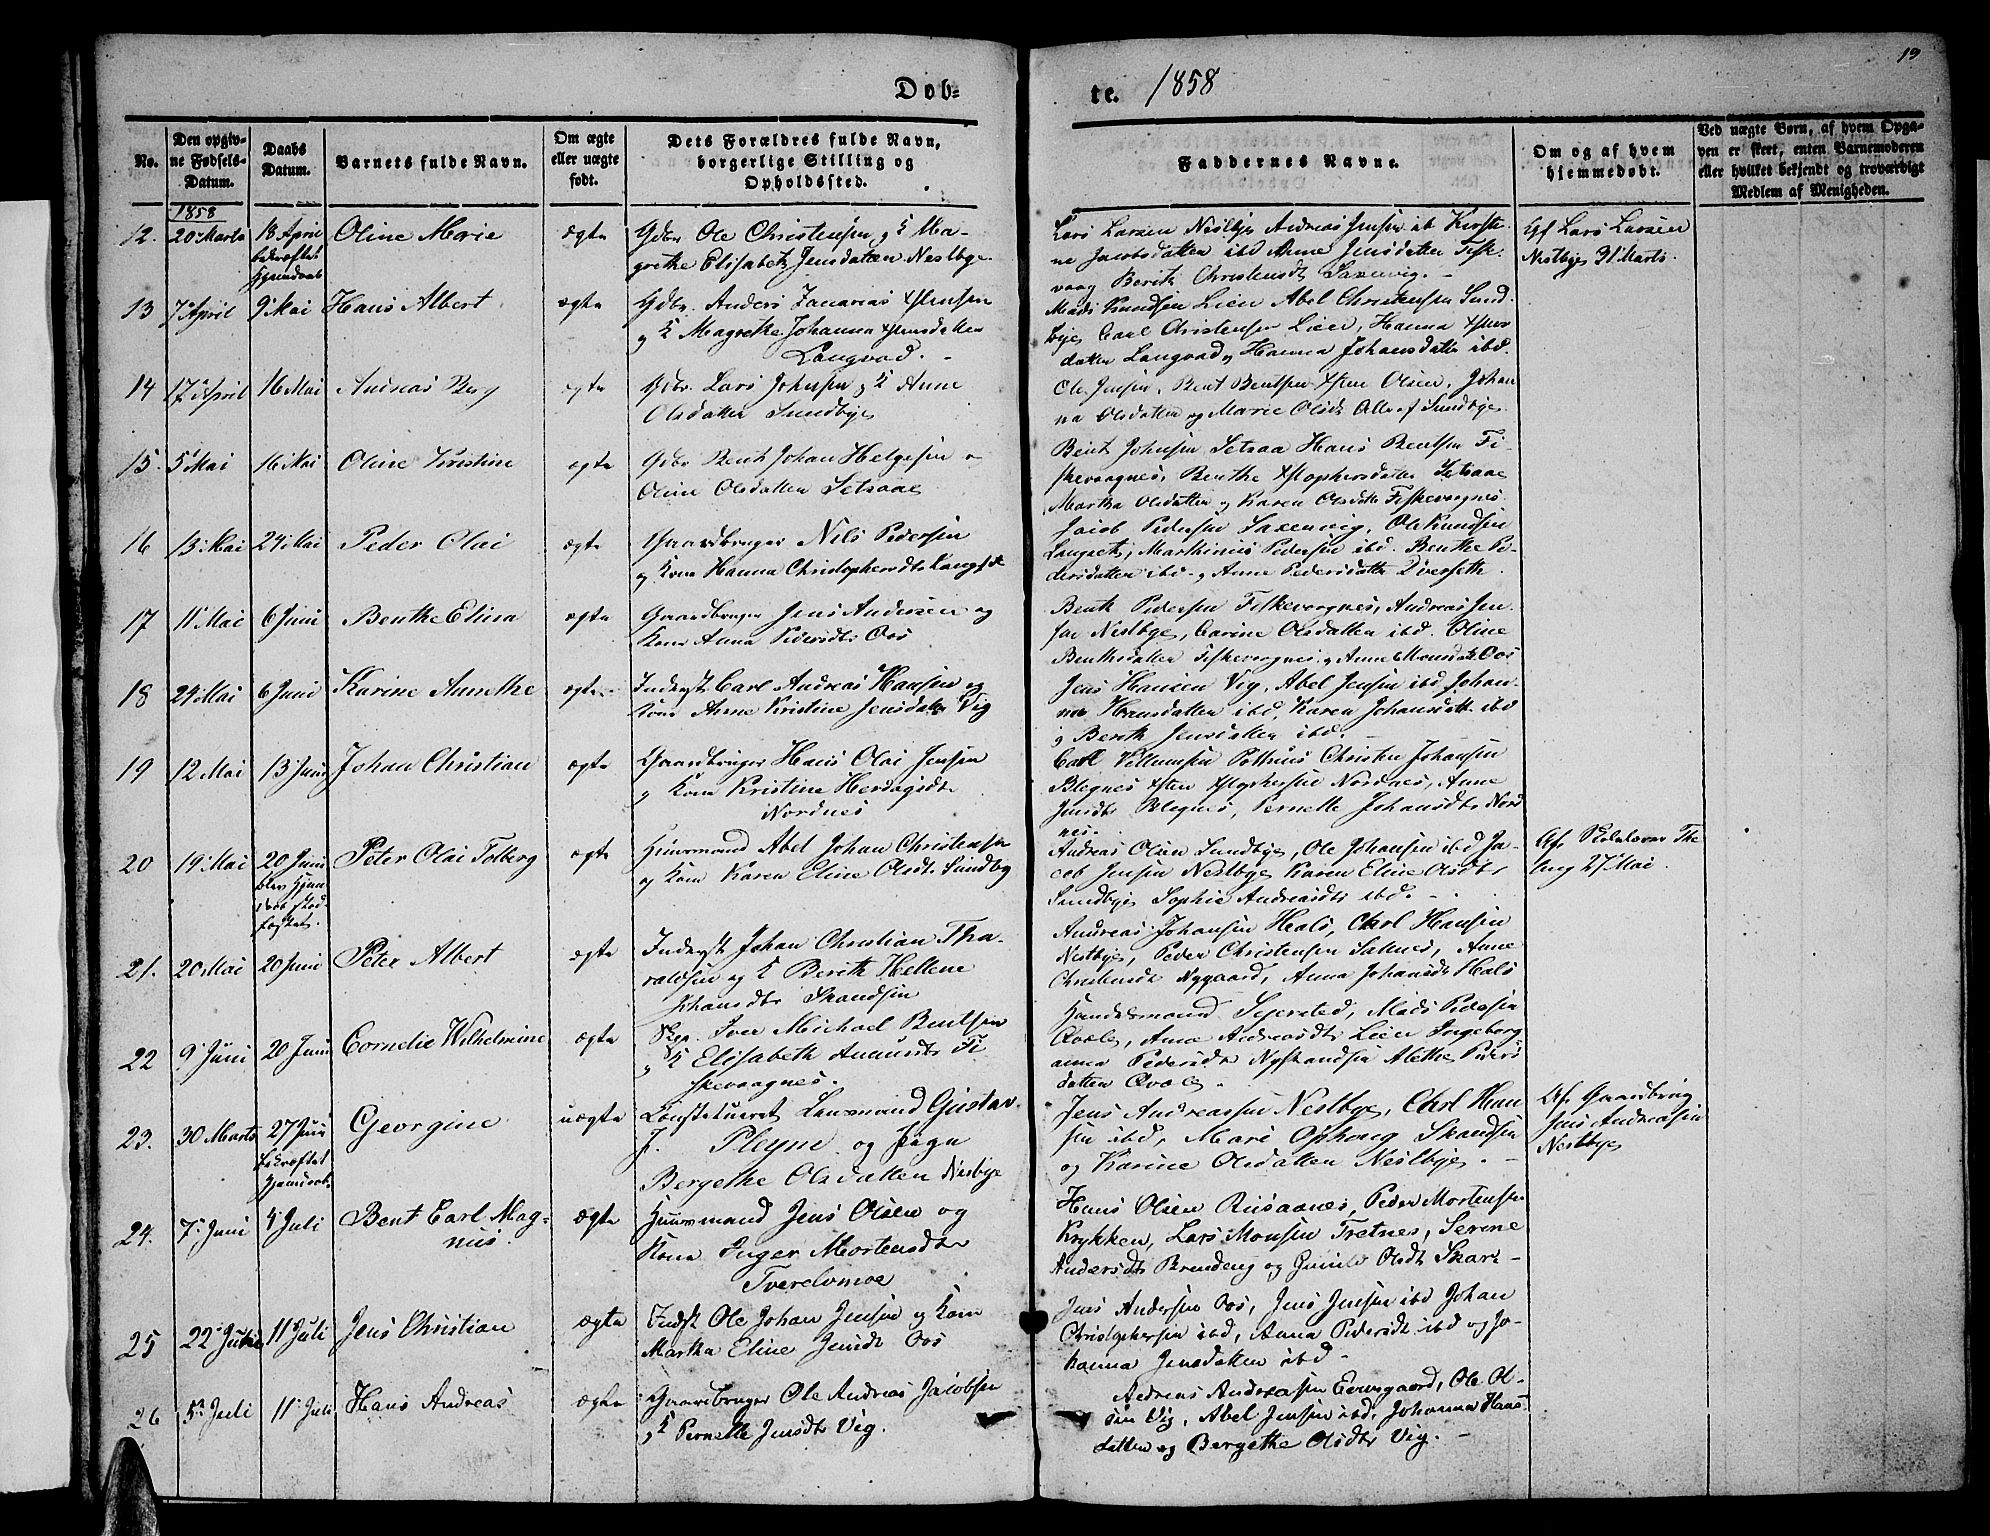 19
Døb=
te. 1858
No.
Den opgiv-
ne Fødsels-
Datum.
Daabs
Datum.
Barnets fulde Navn.
Om ægte
eller uægte
født.
Dets Forældres fulde Navn,
borgerlige Stilling og
Opholdssted.
Faddernes Navne.
Om og af hvem
hjemmedøbt.
Ved uægte Børn, af hvem Opga-
ven er skeet, enten Barnemoderen
eller hvilket bekjendt og troværdigt
Medlem af Menigheden.
1858
12. 20 Marts 18 April
bekræftet
Hjemdaab
Oline Marie
ægte
Gdbr Ole Christensen og K Ma-
grethe Elisabeth Jensdatter Nestbye
Lars Larsen Nestbye Andreas Jensen ib Kirsti-
ne Jacobsdatter ibd Anne Jensdatter Fisk-
vaag Berith Christensdt Saxenvig. -
Af Lars Larsen
Nestbye 31 Marts.
13 7 April 9 Mai Hans Albert
ægte
Gdbr. Anders Zacarias
og K Magrethe Johanna
Langvad. -
Mads Knudsen Lien Abel Christensen Sund
bye Carl Christensen Lien, Hanna
datter Langvad og Hanna Johansdatter ibd.
14 17 April 16 Mai Andreas Berg
ægte
Gdbr. Lars Johnsen og K Anne
Olsdatter Sundbye
Ole Jensen, Bent Bentsen Olsen, Johan
na Olsdatter og Marie Olsdt Alle af Sundbye
15. 5 Mai 16 Mai Oline Kristine
ægte
Gdbr Bent Johan Helgesen o
Oline Olsdatter Setsaae
Bent Johnsen Setsaa Hans Bentsen Fi-
skevaagnes, Benthe Setsaae
Martha Olsdatter og Karen Olsdtr Fiskevaagnes.
16 13 Mai 24 Mai Peder Olai
ægte
Gaardbruger Nils Pedersen
og Kone Hanna Christophersdtr
Jacob Pedersen Saxenvig, Ole Knudsen
Langset, Marthinus Pedersen ibd. Benthe Pe-
dersdatter ibd - og Anne Pedersdatter
17 11 Mai 6 Juni Benthe Elina
ægte
Gaardbruger Jens Andersen og
Kone Anna Pedersdtr Oos
Bent Pedersen Fiskevaagnes, Andreas Jen
sen Nestbye, Carine Olsdatter ibd. Oline
Benthsdatter Fiskevaagnes og Anne Monsdtr Oos
18 24 Mai 6 Juni Karine Anethe
ægte
Inderst Carl Andreas Hansen og
Kone Anne Kristine Jensdatter Vig
Jens Hansen Vig, Abel Jensen ibd Johan-
na Hansdatter ibd, Karen Johansdatt. ibd
og Berith Jensdatter ibd. -
19 12 Mai 13 Juni Johan Christian
ægte
Gaardbruger Hans Olai Jensen
og Kone Kristine Herdagsdtr
Nordnes
Carl Villumsen Pothus Christen Johansen
Blegnes Nordnes, Anne
Jensdtr Blegnes, Pernelle Johansdtr Nord
nes.
20 19 Mai 20 Juni
blev Hjem
daab stad-
fæstet.
Peter Olai Tolberg
ægte
Huusmand Abel Johan Christensen
og Kone Karen Eline Olsdtr Sundby
Andreas Olsen Sundbye, Ole Johansen ibd Ja-
cob Jensen Nestbye Karen Eline Olsdtr
Sundbye Sophie Andreasdtr ibd. -
Af Skolelærer
27 Mai
21. 20 Mai 20 Juni Peter Albert
ægte
Inderst Johan Christian Tha-
raldsen og K Berith Hellene
Johansdtr Skandsen
Andreas Johansen Hals, Carl Hansen
Nestbye, Peder Christensen Saltnes, Anne
Christensdt Nygaard, Anna Johansdt Hals
22 9 Juni 20 Juni Cornelie Wilhelmine
ægte
Iver Michael Bentsen
og K Elisabeth Amundtr Fi
skevaagnes.
Handelsmand Sejersted, Mads Pedersen
Qvale, Anne Andreasdtr Lien Ingeborg
anna Pedersdtr Nyskandsen Alethe Peders
datter Qvale. -
23. 30 Marts 27 Juni
bekræftet
Hjemdaab.
Georgine
uægte
Constitueret Lensmand Gustav
J. Pleym og Pige
Bergethe Olsdatter Nestbye
Jens Andreassen Nestbye, Carl Han
sen ibd, Mari Ophoug Skandsen
og Karine Olsdatter Nestbye. -
Af Gaardbrug
Jens Andreasen
Nestbye
24. 7 Juni 4 Juli Bent Carl Mag-
nus
ægte
Huusmand Jens Olsen og
Kone Inger Mortensdtr
Tverelvmoe
Hans Olsen Rusaanes, Peder Mortensen
Krykken, Lars Monsen Tretnes, Serine
Andersdtr Brendeng og Gunild Olsdt Skar -
25 22 Juni 11 Juli Jens Christian
ægte
Indst Ole Johan Jensen og Kone
Martha Eline Jensdt Oos
Jens Andersen Oos, Jens Jensen ibd Johan
Christophersen ibd, Anna Pedersdt ibd og Jo-
hanna Jensdatter ibd -
26 5 Juli 11 Juli Hans Andreas
ægte
Gaardbruger Ole Andreas Jacobsen
og K Pernelle Jensdtr Vig.
Andreas Andreasen Evensgaard, Ole Ol-
sen Vig, Abel Jensen ibd, Johanna Hans
datter og Bergethe Olsdtr Vig. -